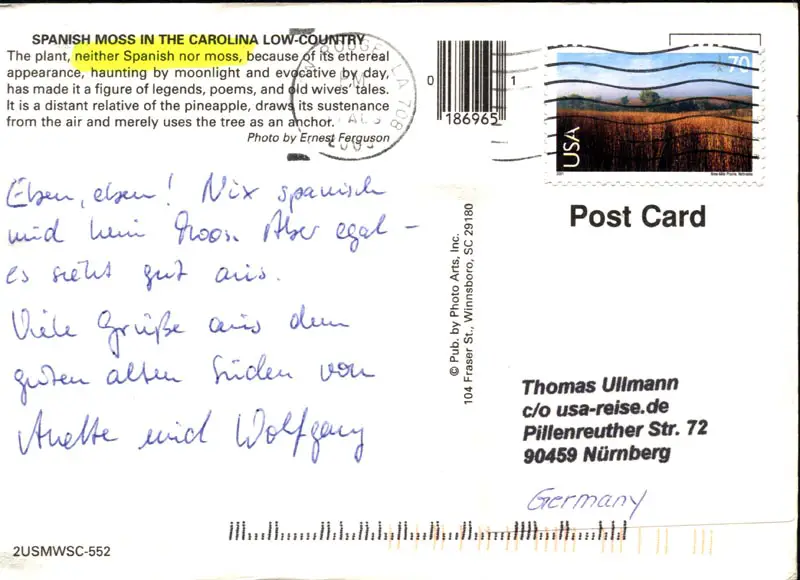 SPANISH MOSS IN THE CAROLINA LOW-COUNTRY
The plant, neither Spanish nor moss, because of its ethereal
appearance, haunting by moonlight and evocative by day,
has made it a figure of legends, poems, and old wives' tales.
It is a distant relative of the pineapple, draws its sustenance
from the air and merely uses the tree as an anchor.
Photo by Ernest Ferguson
Eben, eben! Nix spanisch
und kein Moos. Aber egal –
es sieht gut aus.
Viele Grüße aus dem
guten alten Süden von
Anette und Wolfgang
2USMWSC-552
0
1
186965
© Pub. by Photo Arts, Inc.
104 Fraser St., Winnsboro, SC 29180
LA 708
PM
70
USA
Post Card
Thomas Ullmann
c/o usa-reise.de
Pillenreuther Str. 72
90459 Nürnberg
Germany